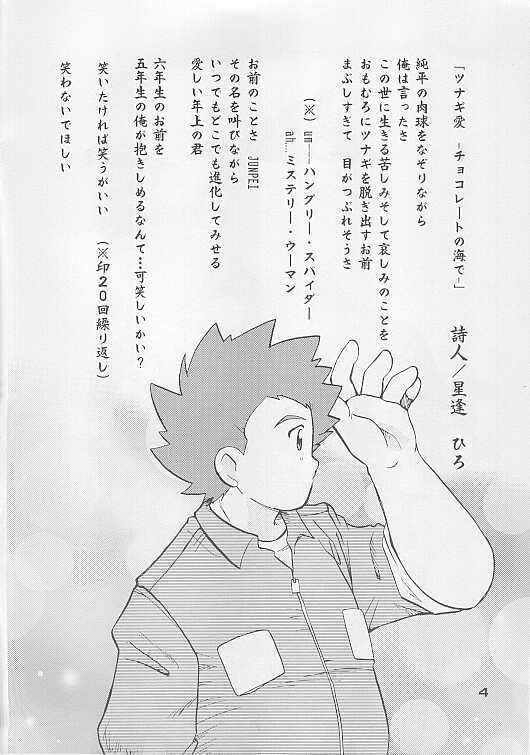 「ツナギ愛 -チョコレートの海で-」
詩人/星逢 ひろ
純平の肉球をなぞりながら
俺は言ったさ
この世に生きる苦しみそして哀しみのことを
おもむろにツナギを脱ぎ出すお前
まぶしすぎて 目がつぶれそうさ
(※) un──ハングリー・スパイダー
ah…ミステリー・ウーマン
お前のことさ JUNPEI
その名を叫びながら
いつでもどこでも進化してみせる
愛しい年上の君
六年生のお前を
五年生の俺が抱きしめるなんて…可笑しいかい?
笑いたければ笑うがいい (※印20回繰り返し)
笑わないでほしい
4